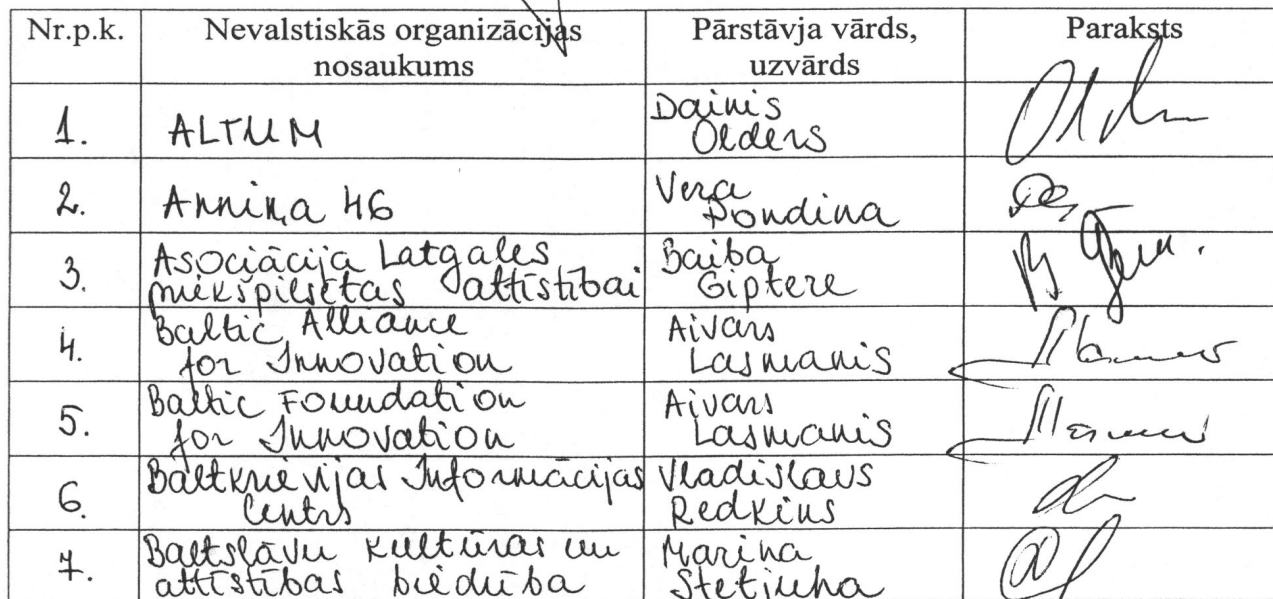 Nr.p.k. Nevalstiskās organizācijas nosaukums Pārstāvja vārds, uzvārds Paraksts
1. ALTUM Dainis Olders
2. Anniņa 46 Vera Pondina
3. Asociācija Latgales mikšpilsētas attīstībai Baiba Giptere
4. Baltic Alliance for Innovation Aivars Lasmanis
5. Baltic Foundation for Innovation Aivars Lasmanis
6. Baltkrievijas Informācijas Centrs Vladislavs Redkins
7. Baltslāvu kultūras un attīstības biedrība Marina Stetjuha